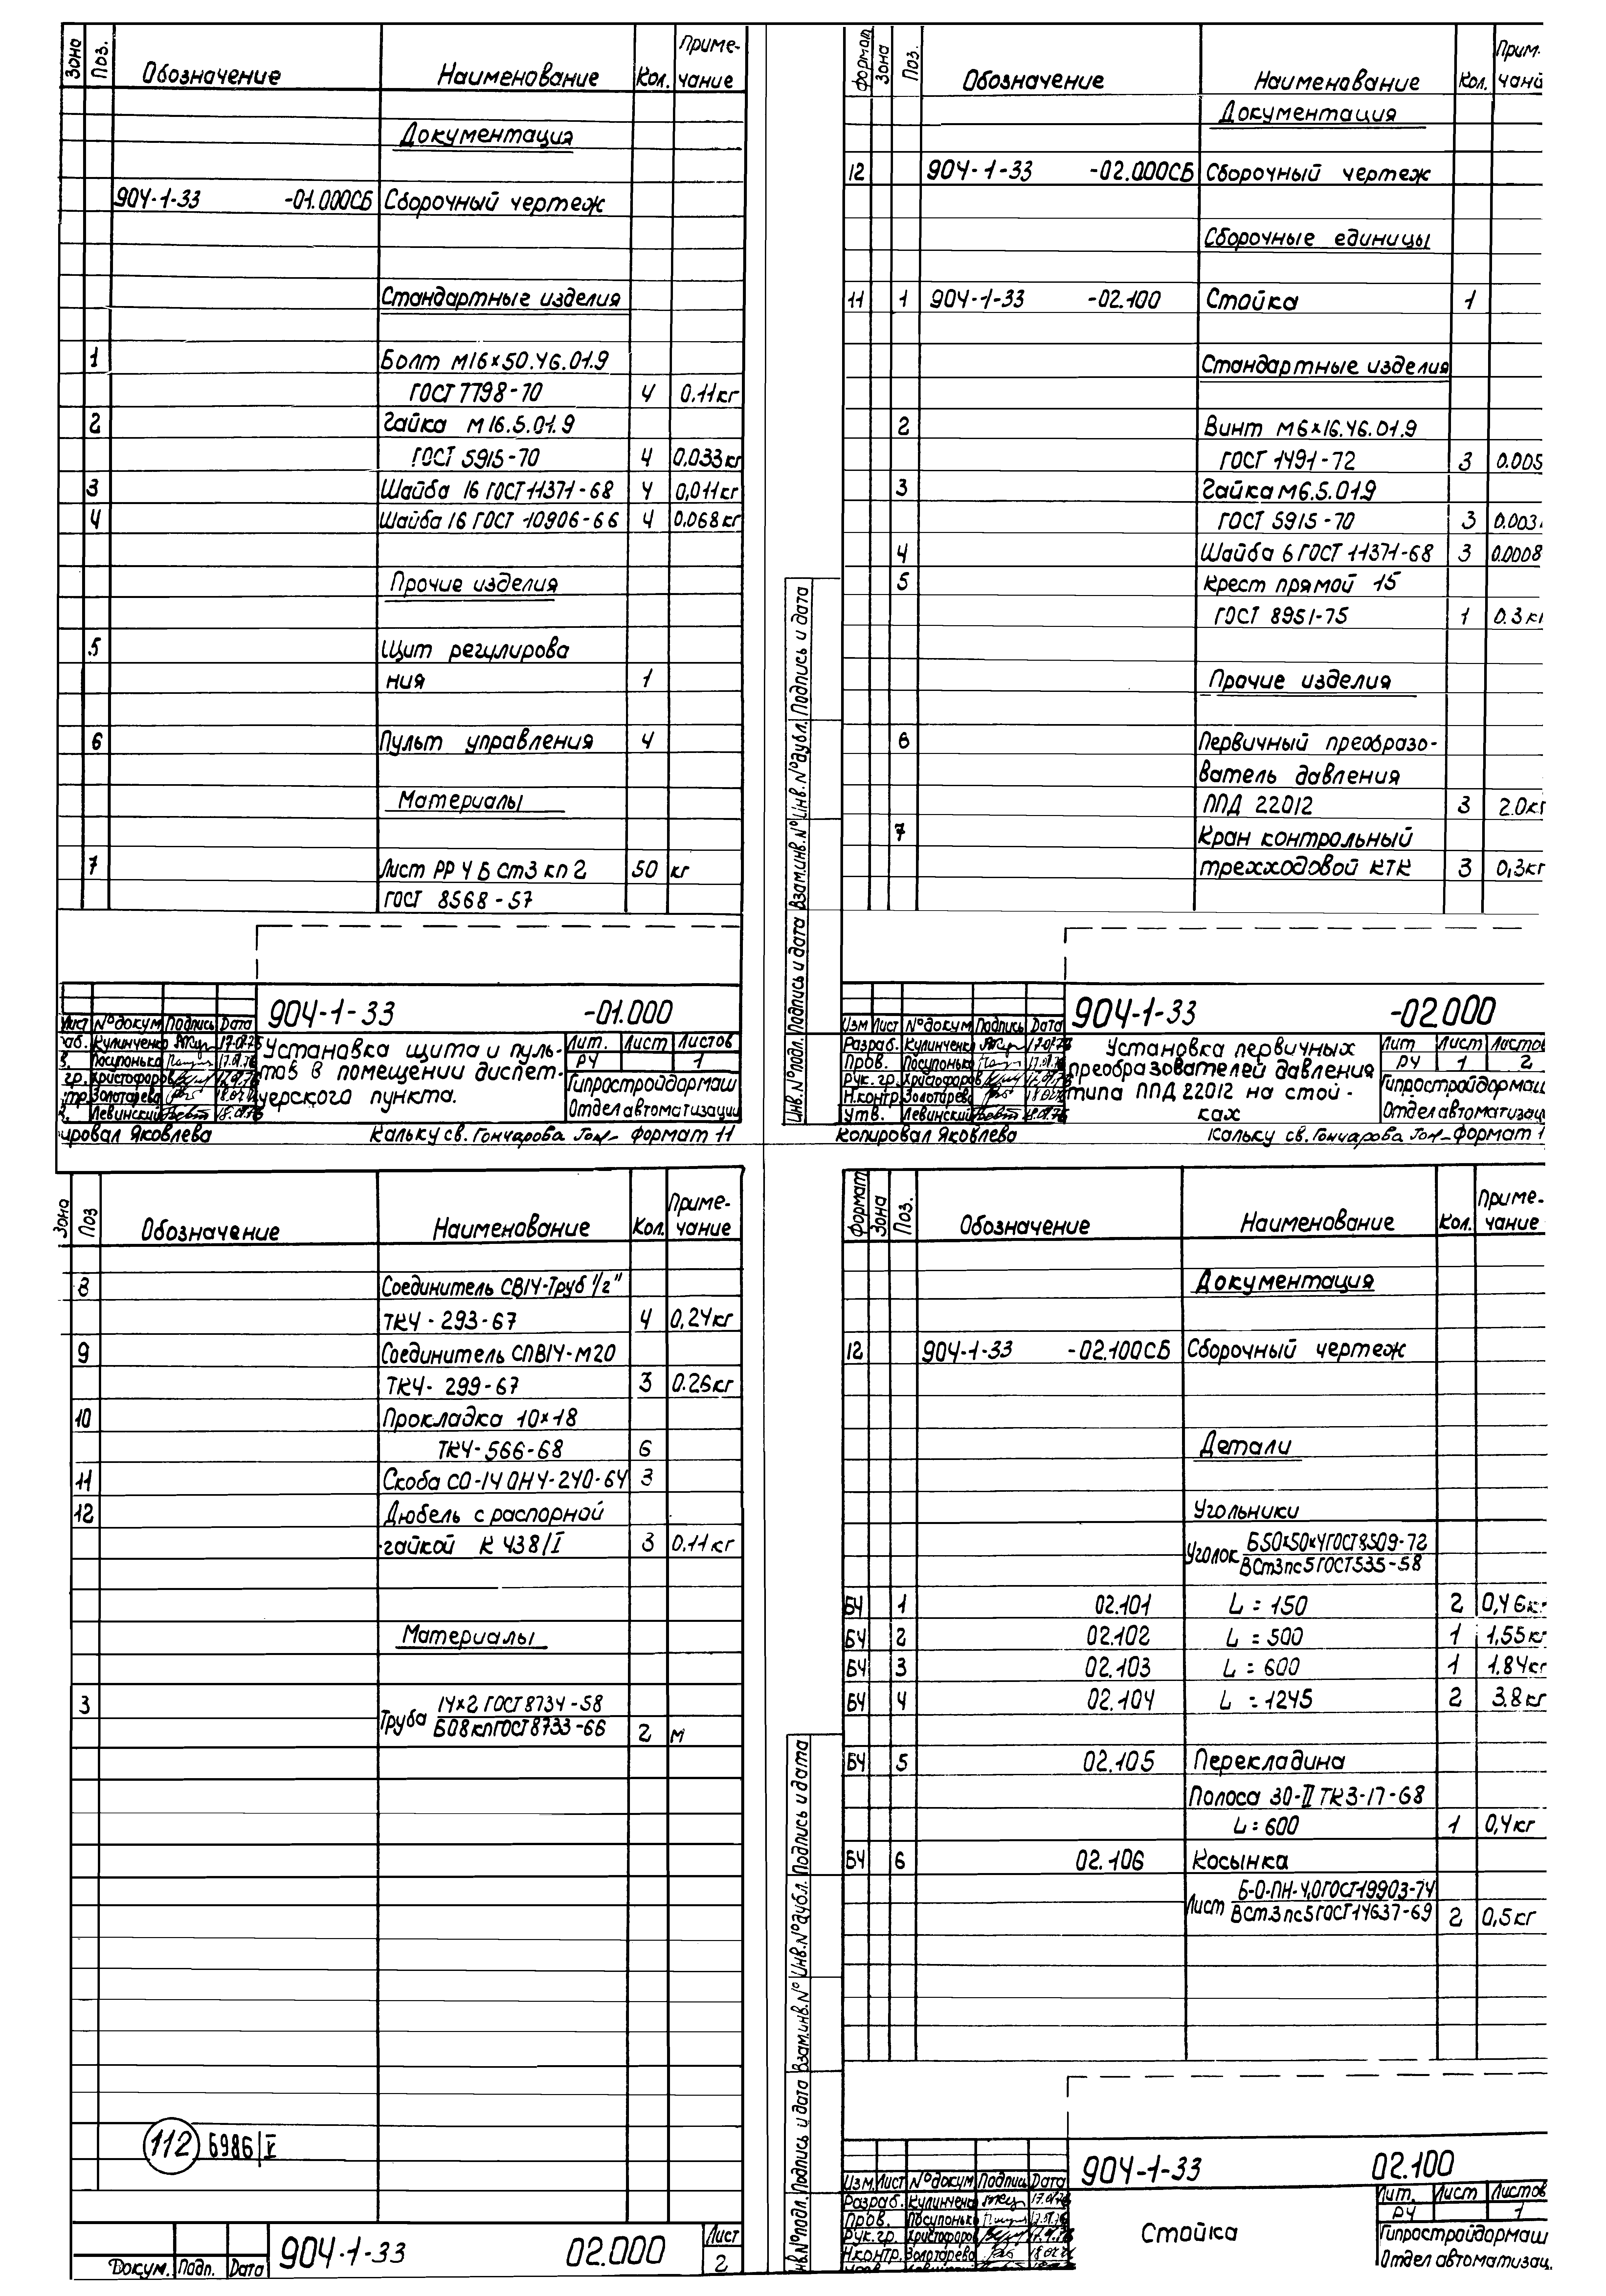 Зона Поз. Обозначение Наименование Кол. Приме-
чание
Документация
904-1-33 -01.000СБ Сборочный чертеж
Стандартные изделия
1 Болт М16×50.46.01.9
ГОСТ 7798-70 4 0.11кг
2 Гайка М16.5.01.9
ГОСТ 5915-70 4 0,033кг
3 Шайба 16 ГОСТ 11371-68 4 0,011кг
4 Шайба 16 ГОСТ 10906-66 4 0.068кг
Прочие изделия
5 Щит регулирова
ния 1
6 Пульт управления 4
Материалы
7 Лист РР 4 Б Ст3 кп 2 50 кг
ГОСТ 8568-57
904-1-33 -01.000
Лист №докум Подпись Дата
Кулинченко
Посупонько
гр. Христофоров
Золотарева
Левинский
Установка щита и пуль-
тов в помещении диспет-
черского пункта.
Лит. Лист Листов
РЧ 1
Гипростройдормаш
Отдел автоматизации
ировал Яковлева Кальку св. Гончарова формат 11
формат Зона Поз. Обозначение Наименование Кол. Прим-
чани
Документация
12 904-1-33 -02.000СБ Сборочный чертеж
Сборочные единицы
11 1 904-1-33 -02.100 Стойка 1
Стандартные изделия
2 Винт М6×16.46.01.9
ГОСТ 1491-72 3 0.005
3 Гайка М6.5.01.9
ГОСТ 5915-70 3 0.003
4 Шайба 6 ГОСТ 11371-68 3 0.0008
5 Крест прямой 15
ГОСТ 8951-75 1 0.3кг
Прочие изделия
6 Первичный преобразо-
ватель давления
ППД 22012 3 2.0кг
7 Кран контрольный
трехходовой КТК 3 0,3кг
Инв.№подл. Подпись и дата Взам.инв.№ Инв.№дубл. Подпись и дата
904-1-33 -02.000
Изм Лист №докум. Подпись Дата
Разраб. Кулинченко
Пров. Посупонько
Рук. гр. Христофоров
Н.контр. Золотарева
Утв. Левинский
Установка первичных
преобразователей давления
типа ППД 22012 на стой-
ках
Лит Лист Листов
РЧ 1 2
Гипростройдормаш
Отдел автоматизац
Копировал Яковлева Кальку св. Гончарова формат 1
Зона Поз Обозначение Наименование Кол. Приме-
чание
8 Соединитель СВ14-Труб 1/2"
ТК4-293-67 4 0,24кг
9 Соединитель СПВ14-М20
ТК4-299-67 3 0.26кг
10 Прокладка 10×18
ТК4-566-68 6
11 Скоба СО-14 ОН4-240-64 3
12 Дюбель с распорной
гайкой К 438/I 3 0.11кг
Материалы
3 Труба 14×2 ГОСТ 8734-58
Б08кп ГОСТ 8733-66 2 м
112 6986/V
Докум. Подп. Дата 904-1-33 02.000 Лист
2
Формат Зона Поз. Обозначение Наименование Кол. Приме-
чание
Документация
12 904-1-33 -02.100СБ Сборочный чертеж
Детали
Угольники
Уголок Б50×50×4 ГОСТ 8509-72
ВСт3пс5 ГОСТ 535-58
БЧ 1 02.101 L = 150 2 0,46кг
БЧ 2 02.102 L = 500 1 1,55кг
БЧ 3 02.103 L = 600 1 1.84кг
БЧ 4 02.104 L = 1245 2 3.8кг
БЧ 5 02.105 Перекладина
Полоса 30-II ТК3-17-68
L = 600 1 0,4кг
БЧ 6 02.106 Косынка
Лист Б-О-ПН-4,0 ГОСТ 19903-74
ВСт.3пс5 ГОСТ 14637-69 2 0,5кг
Инв.№подл. Подпись и дата Взам.инв.№ Инв.№дубл. Подпись и дата
904-1-33 02.100
Изм. Лист №докум Подпись Дата
Разраб. Кулинченко
Пров. Посупонько
Рук.гр. Христофоров
Н.контр. Золотарева
Стойка
Лит. Лист Листов
РЧ 1
Гипростройдормаш
Отдел автоматизац.